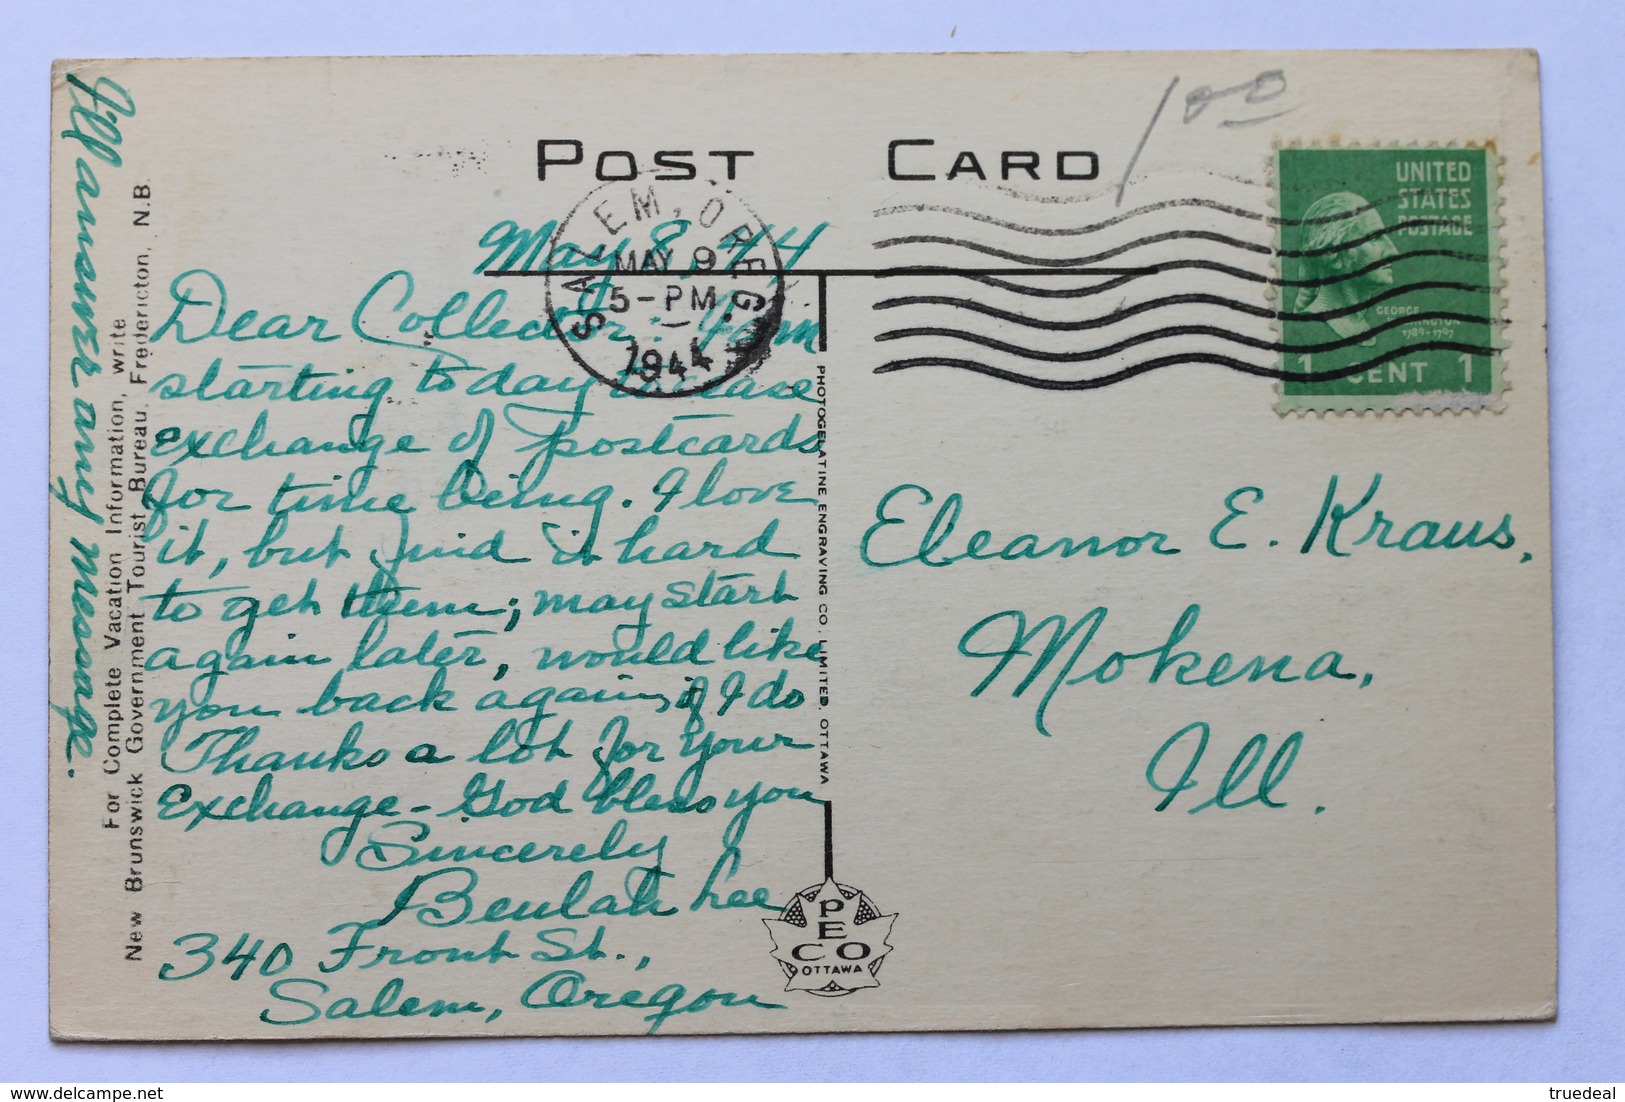 1 00
POST CARD
UNITED
STATES
POSTAGE
GEORGE
WASHINGTON
1789-1797
1 CENT 1
SALEM, OREG.
MAY 9
5-PM
1944
May 8, 44
Dear Collector: I am
starting today to cease
exchange of postcards
for time being. I love
it, but find it hard
to get them; may start
again later, would like
you back again, if I do
Thanks a lot for your
Exchange - God bless you
Sincerely
Beulah Lee
340 Front St.,
Salem, Oregon
I'll answer any message.
For Complete Vacation Information, write
New Brunswick Government Tourist Bureau, Fredericton, N.B.
PHOTOGELATINE ENGRAVING CO. LIMITED, OTTAWA
PECO
OTTAWA
Eleanor E. Kraus,
Mokena,
Ill.
delcampe.net
truedeal